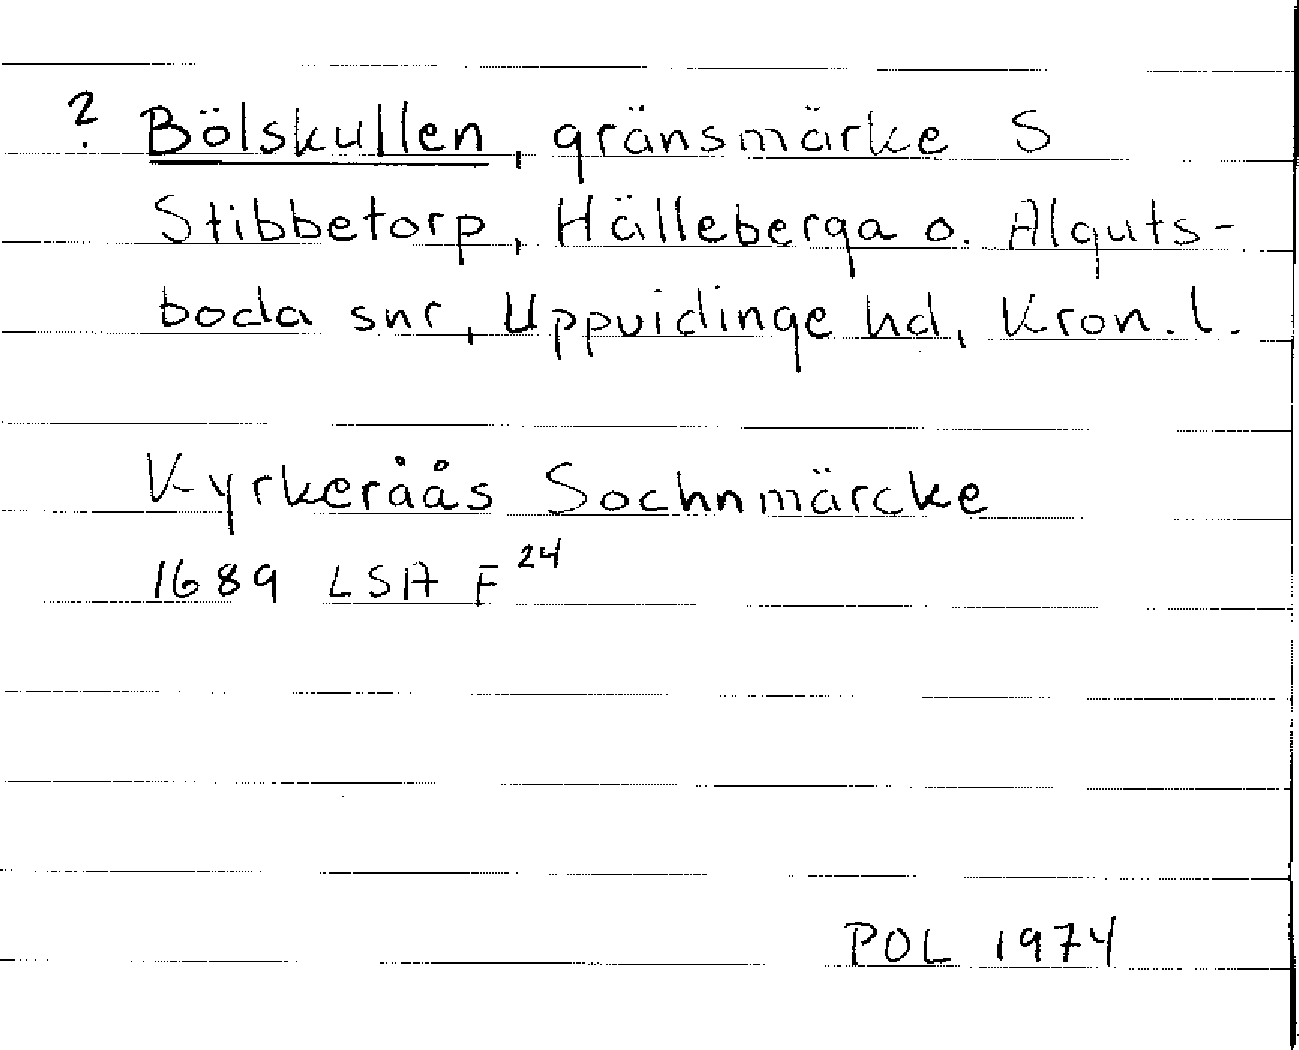 ? Bölskullen, gränsmärke S
Stibbetorp, Hälleberga o. Alguts-
boda snr, Uppvidinge hd, Kron. l.
Kyrkeråås Sochnmärcke
1689 LSA F 24
POL 1974